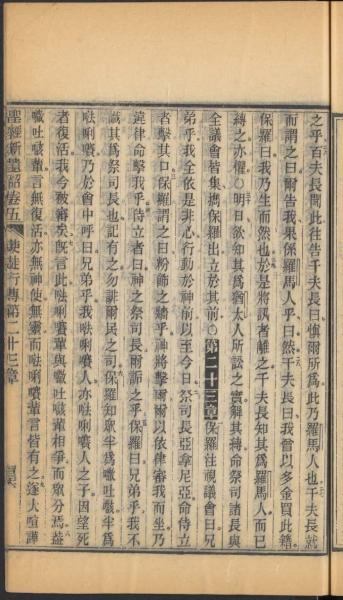 之乎百夫長聞此往告千夫長曰慎爾所爲此乃羅馬人也千夫長就
而謂之曰爾告我果係羅馬人乎曰然千夫長曰我曾以多金買此籍
保羅曰我乃生而然也於是將訊者離之千夫長知其爲羅馬人而已
縛之亦懼○明日欲知其爲猶太人所訟之實解其縛命祭司諸長與
全議會皆集攜保羅出立於其前○第二十三章保羅注視議會曰兄
弟乎我全依是非心行動於神前以至今日祭司長亞拿尼亞命侍立
者擊其口保羅謂之曰粉飾之牆乎神將擊爾爾以依律審我而坐乃
違律命擊我乎侍立者曰神之祭司長爾詬之乎保羅曰兄弟乎我不
識其爲祭司長也記有之勿誹爾民之司保羅知眾半爲𠿝吐𠿝半爲
㕸唎㘔乃於會中呼曰兄弟乎我㕸唎㘔人亦㕸唎㘔人之子因望死
者復活我今被審矣旣言此㕸唎㘔輩與𠿝吐𠿝輩相爭而眾分焉蓋
𠿝吐𠿝輩言無復活亦無神使無靈而㕸唎㘔輩言皆有之遂大喧譁
聖經新遺詔卷五 使徒行傳第二十三章